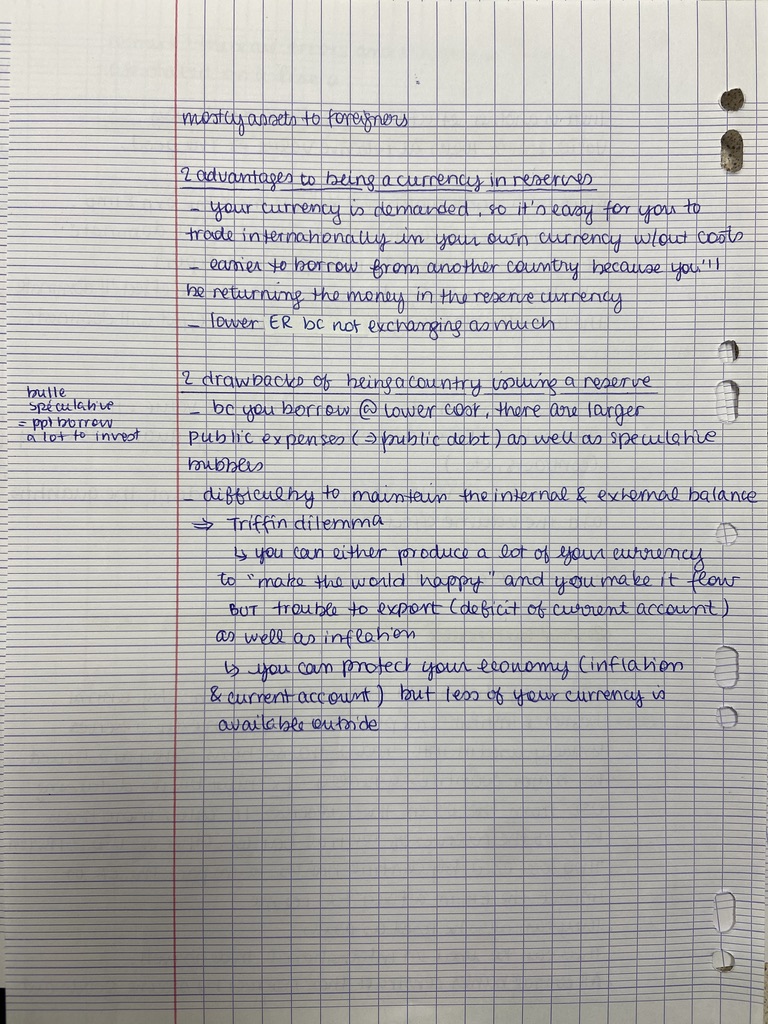 mostly assets to foreigners
2 advantages to being a currency in reserves
- your currency is demanded, so it's easy for you to
trade internationally in your own currency w/out costs
- easier to borrow from another country because you'll
be returning the money in the reserve currency
- lower ER bc not exchanging as much
2 drawbacks of being a country issuing a reserve
- bc you borrow @ lower cost, there are larger
public expenses (⇒ public debt) as well as speculative
bubbles
bulle
spéculative
= ppl borrow
a lot to invest
- difficulty to maintain the internal & external balance
⇒ Triffin dilemma
↳ you can either produce a lot of your currency
to "make the world happy" and you make it flow
BUT trouble to export (deficit of current account)
as well as inflation
↳ you can protect your economy (inflation
& current account) but less of your currency is
available outside